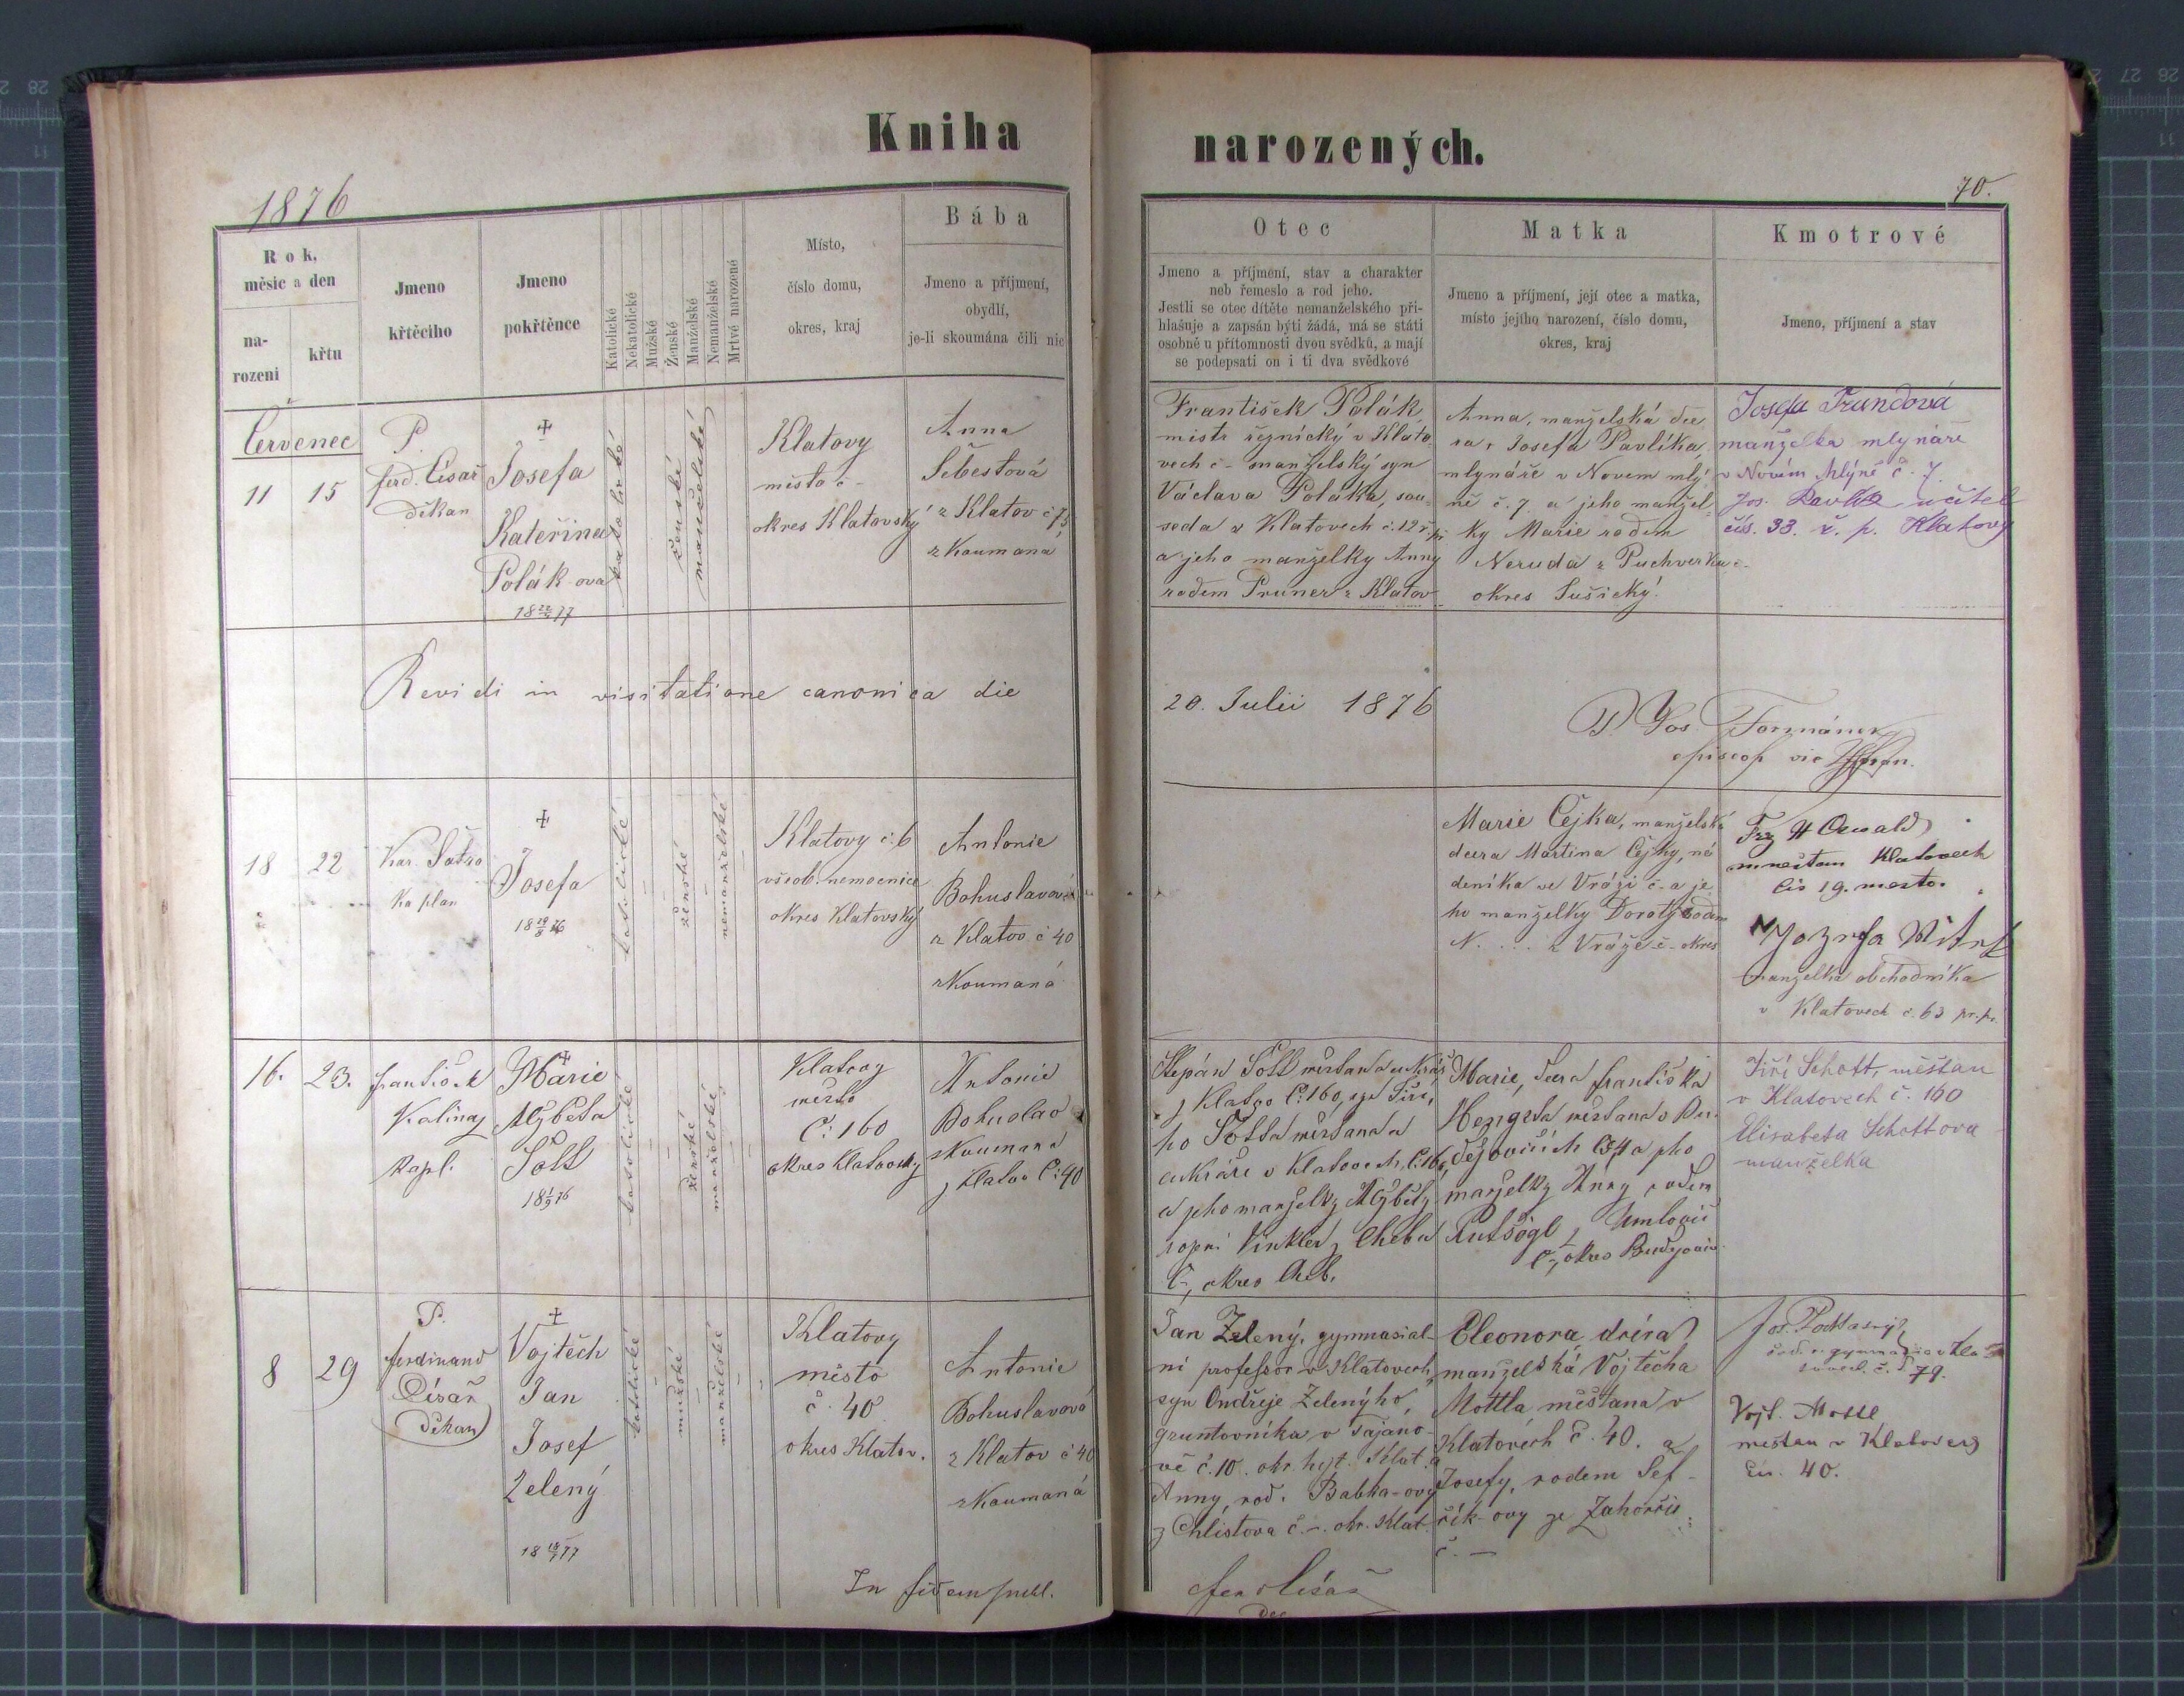 Kniha
narozených.
1876
70.
Rok,
měsíc a den
na-
rozeni
křtu
Jmeno
křtěcího
Jmeno
pokřtěnce
Katolické
Nekatolické
Mužské
Ženské
Manželské
Nemanželské
Mrtvě narozené
Místo,
číslo domu,
okres, kraj
Bába
Jmeno a příjmení,
obydlí,
je-li skoumána čili nic
Otec
Jmeno a příjmení, stav a charakter
neb řemeslo a rod jeho.
Jestli se otec dítěte nemanželského při-
hlašuje a zapsán býti žádá, má se státi
osobně u přítomnosti dvou svědků, a mají
se podepsati on i ti dva svědkové
Matka
Jmeno a příjmení, její otec a matka,
místo jejího narození, číslo domu,
okres, kraj
Kmotrové
Jmeno, příjmení a stav
Červenec
11
15
P.
Ferd. Císař
děkan
Josefa
Kateřina
Polák-ova
katolické
ženské
manželské
Klatovy
město č -
okres Klatovský
Anna
Šebestová
z Klatov č 75
zkoumaná
František Polák
mistr řeznický v Klato-
vech č - manželský syn
Václava Poláka, sou-
seda z Klatovech č. 12
a jeho manželky Anny
rodem Pruner z Klatov
Anna, manželská dce
ra, Josefa Pavlíka,
mlynáře v Novem mlý-
ně č. 7. a jeho manžel-
ky Marie rodem
Neruda z Puchverku č-
okres Sušický.
Josefa Trundová
manželka mlynáře
v Novém Mlýně č. 7.
Jos. Pavlík učitel
čís. 33. Klatovy
Revidi in visitatione canonica die
20. Julii 1876
P. Jos. Formánek
episcop vic
18
22
Kar. Šatra
Kaplan
Josefa
katolické
ženské
nemanželské
Klatovy č. 6
všeob. nemocnice
okres Klatovský
Antonie
Bohuslavová
z Klatov č 40
zkoumaná
Marie Čejka, manželská
dcera Martina Čejky, ná
deníka ve Vráži č. a je
ho manželky Doroty rodem
N. ... z Vráže č - okres
Oswald
Klatovech
čís 19. město.
manželka obchodníka
v Klatovech č. 63
16.
23.
František
Kalina
kapl.
Marie
Alžběta
Šott
katolické
ženské
manželské
Klatovy
město
Č: 160
okres Klatovský
Antonie
Bohuslav
zkoumaná
z Klatov Č: 40
Štěpán Šott měšťan a cukrář
z Klatov Č: 160, syn Jiří-
ho Šotta měšťana a
cukráře v Klatovech, Č: 160
a jeho manželky Alžběty
Vinkler z Cheba
Č-, okres Cheb.
Marie, dcera Františka
měšťana v Bu-
dějovicích a jeho
manželky Anny, rodem
Č-, okres Budějovic
Jiří Schott, měšťan
v Klatovech č. 160
Elisabeta Schottova
manželka
8
29
P.
Ferdinand
Císař
děkan
Vojtěch
Jan
Josef
Zelený
katolické
mužské
manželské
Klatovy
město
č. 40
okres Klatov.
Antonie
Bohuslavová
z Klatov č 40
zkoumaná
Jan Zelený, gymnasial-
ní professor v Klatovech,
syn Ondřeje Zelenýho,
gruntovníka v Tajano-
vě č. 10. okr. hejt. Klat. a
Anny, rod. Babka-ovy
z Chlistova č. -. okr. Klat.
Eleonora dcera
manželská Vojtěcha
Mottla měšťana v
Klatovech č. 40. a
Josefy, rodem Šef-
čík-ovy ze Zahorčic
č. -
79.
Vojt. Mottl
měšťan v Klatovech
čís. 40.
In fidem
Ferd Císař